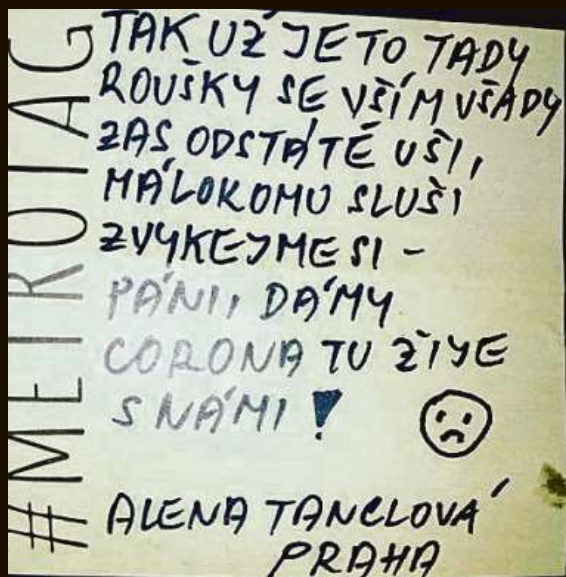 #METROTAG
TAK UŽ JE TO TADY
ROUŠKY SE VŠÍM VŠADY
ZAS ODSTÁTÉ UŠI,
MÁLOKOMU SLUŠÍ
ZVYKEJME SI -
PÁNI, DÁMY
CORONA TU ŽIJE
S NÁMI!
ALENA TANCLOVÁ
PRAHA